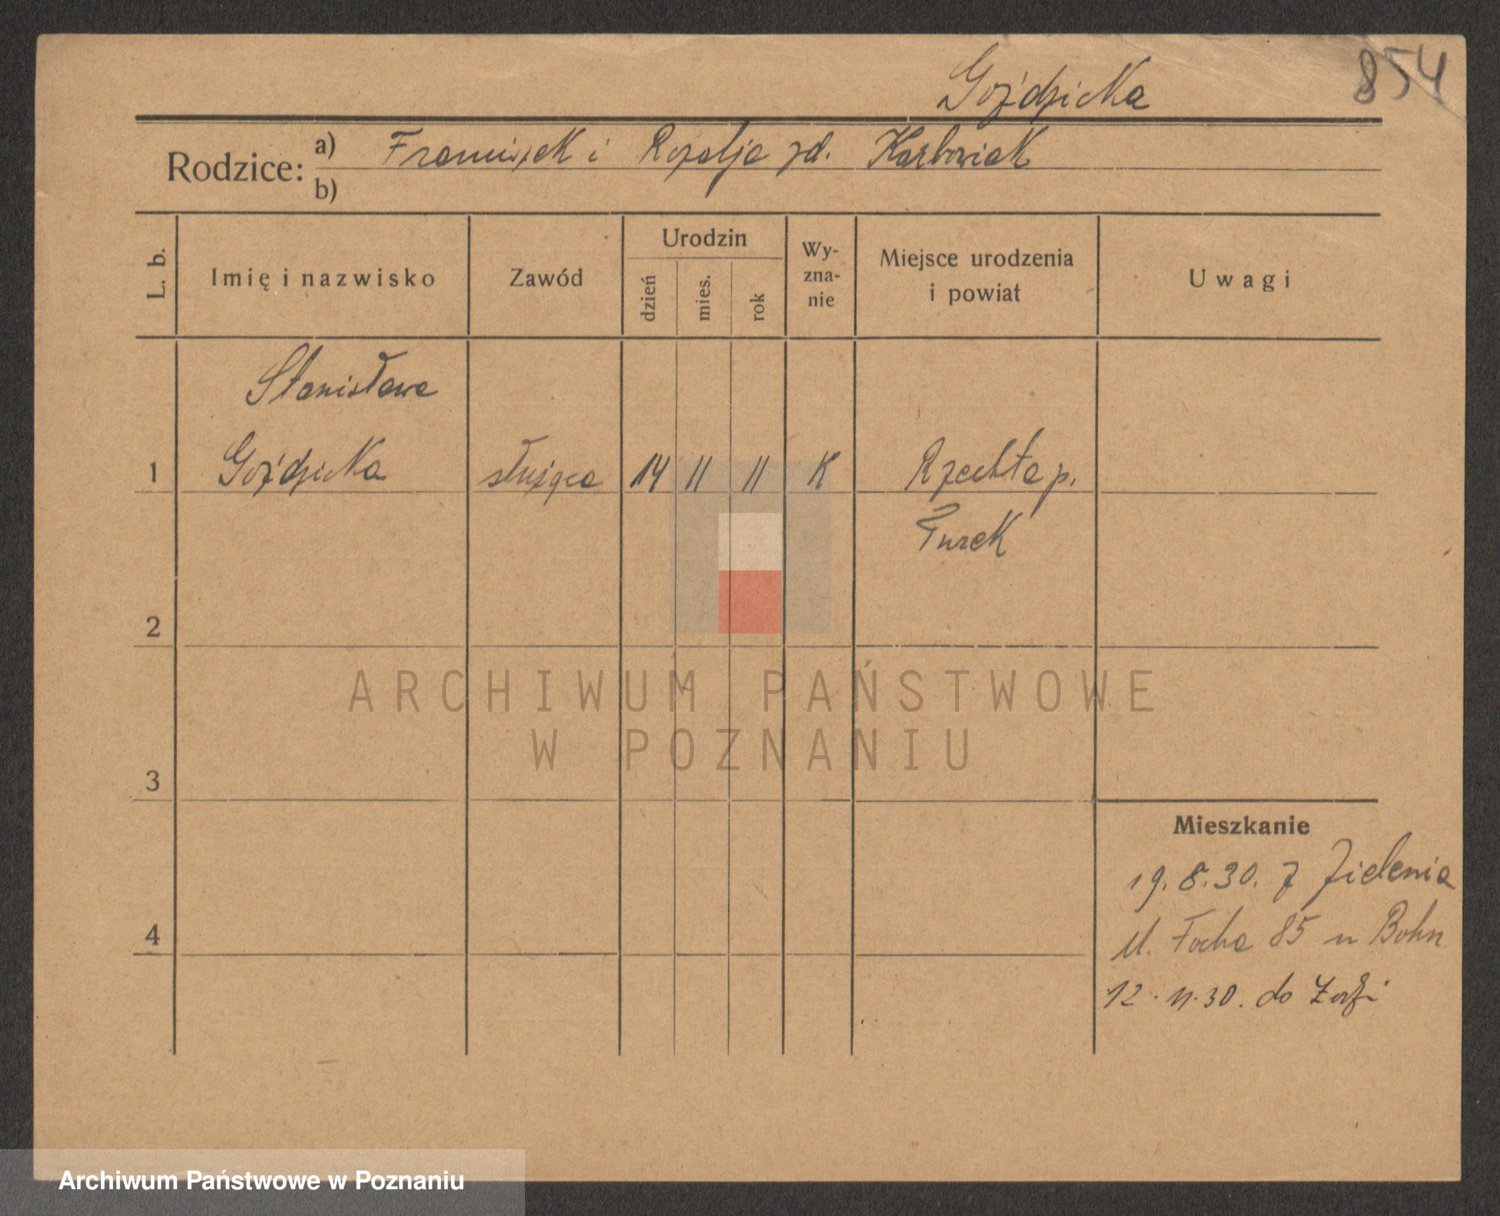 Goździcka
854
Rodzice: a) Franciszek i Rozalja zd. Karbowiak
b)
L. b.
Imię i nazwisko
Zawód
Urodzin
dzień
mies.
rok
Wy-
zna-
nie
Miejsce urodzenia
i powiat
Uwagi
Stanisława
1 Goździcka służąca 14 11 11 K Rzechta p.
Turek
2
3
4
Mieszkanie
19.8.30. z Zielenia
ul. Focha 85 u Bohn
12.11.30. do
ARCHIWUM PAŃSTWOWE
W POZNANIU
Archiwum Państwowe w Poznaniu